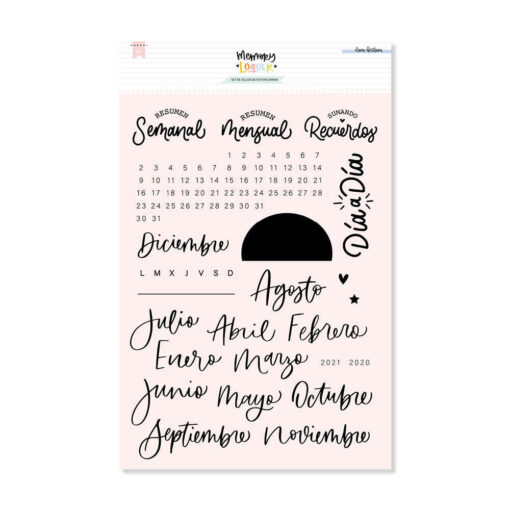 Memory
LOQUER
SET DE SELLOS DE FOTOPOLÍMERO
RESUMEN
Semanal
RESUMEN
Mensual
SUMANDO
Recuerdos
1 2 3 4 5 6 7
2 3 4 5 6 7 8 8 9 10 11 12 13 14
9 10 11 12 13 14 15 15 16 17 18 19 20 21
16 17 18 19 20 21 22 22 23 24 25 26 27 28
23 24 25 26 27 28 29 29 30 31
30 31
Día a Día
Diciembre
L M X J V S D
Agosto
Julio Abril Febrero
Enero Marzo 2021 2020
Junio Mayo Octubre
Septiembre Noviembre